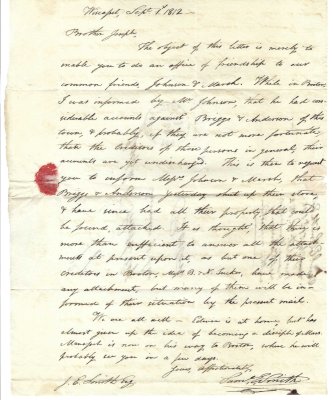 Wiscasset, Sept. 1st 1812 —
Brother Joseph,
The object of this letter is merely to
enable you to do an office of friendship to our
common friends, Johnson & Marsh. While in Boston
I was informed by Mr Johnson, that he had con-
siderable accounts against Briggs & Anderson of this
town, & probably, if they are not more fortunate
than the creditors of these persons in general, their
accounts are yet undischarged. This is then to request
you to inform Messrs Johnson & Marsh, that
Briggs & Anderson yesterday shut up their store,
& have since had all their property, that could
be found, attached. It is thought, that there is
more than sufficient to answer all the attach
ments at present upon it, as but one of their
creditors in Boston, Messrs B. & Tucker, have made
any attachment, but many of them will be in-
formed of their situation by the present mail.
We are all well — Edwin is at home, but has
almost given up the idea of becoming a disciple of Mars.
is now on his way to Boston, where he will
probably see you in a few days.
Yours, affectionately,
J. E. Smith Esq. Saml E Smith